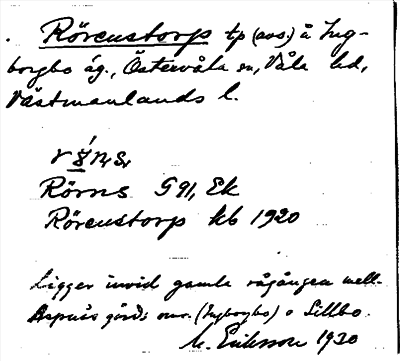 Rörenstorp tp (avs.) å Ing-
borgbo äg., Östervåla sn, Våla hd,
Västmanlands l.
Rörns G 91, Ek
Rörenstorp kb 1920
Ligger invid gamla rågången mell.
Aspnäs gård: omr. (Ingborgbo) o Sillbo.
M. Eriksson 1930